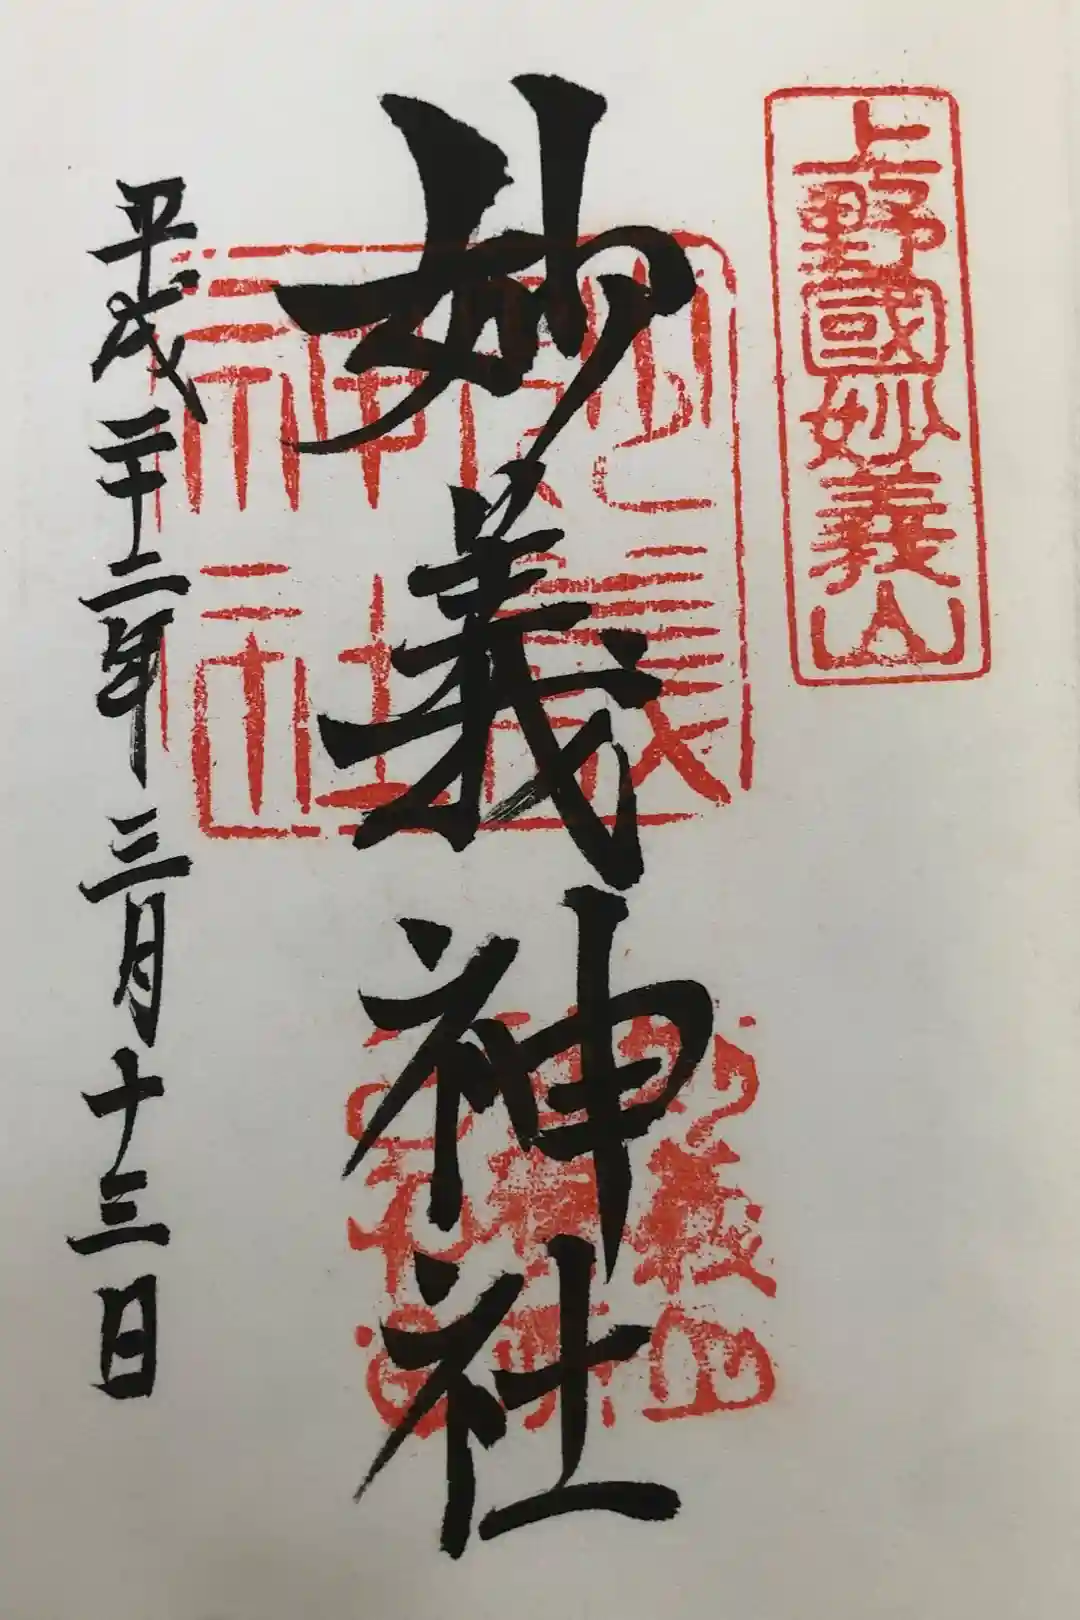 上野國妙義山
妙義神社
妙義神社
平成二十二年三月十三日